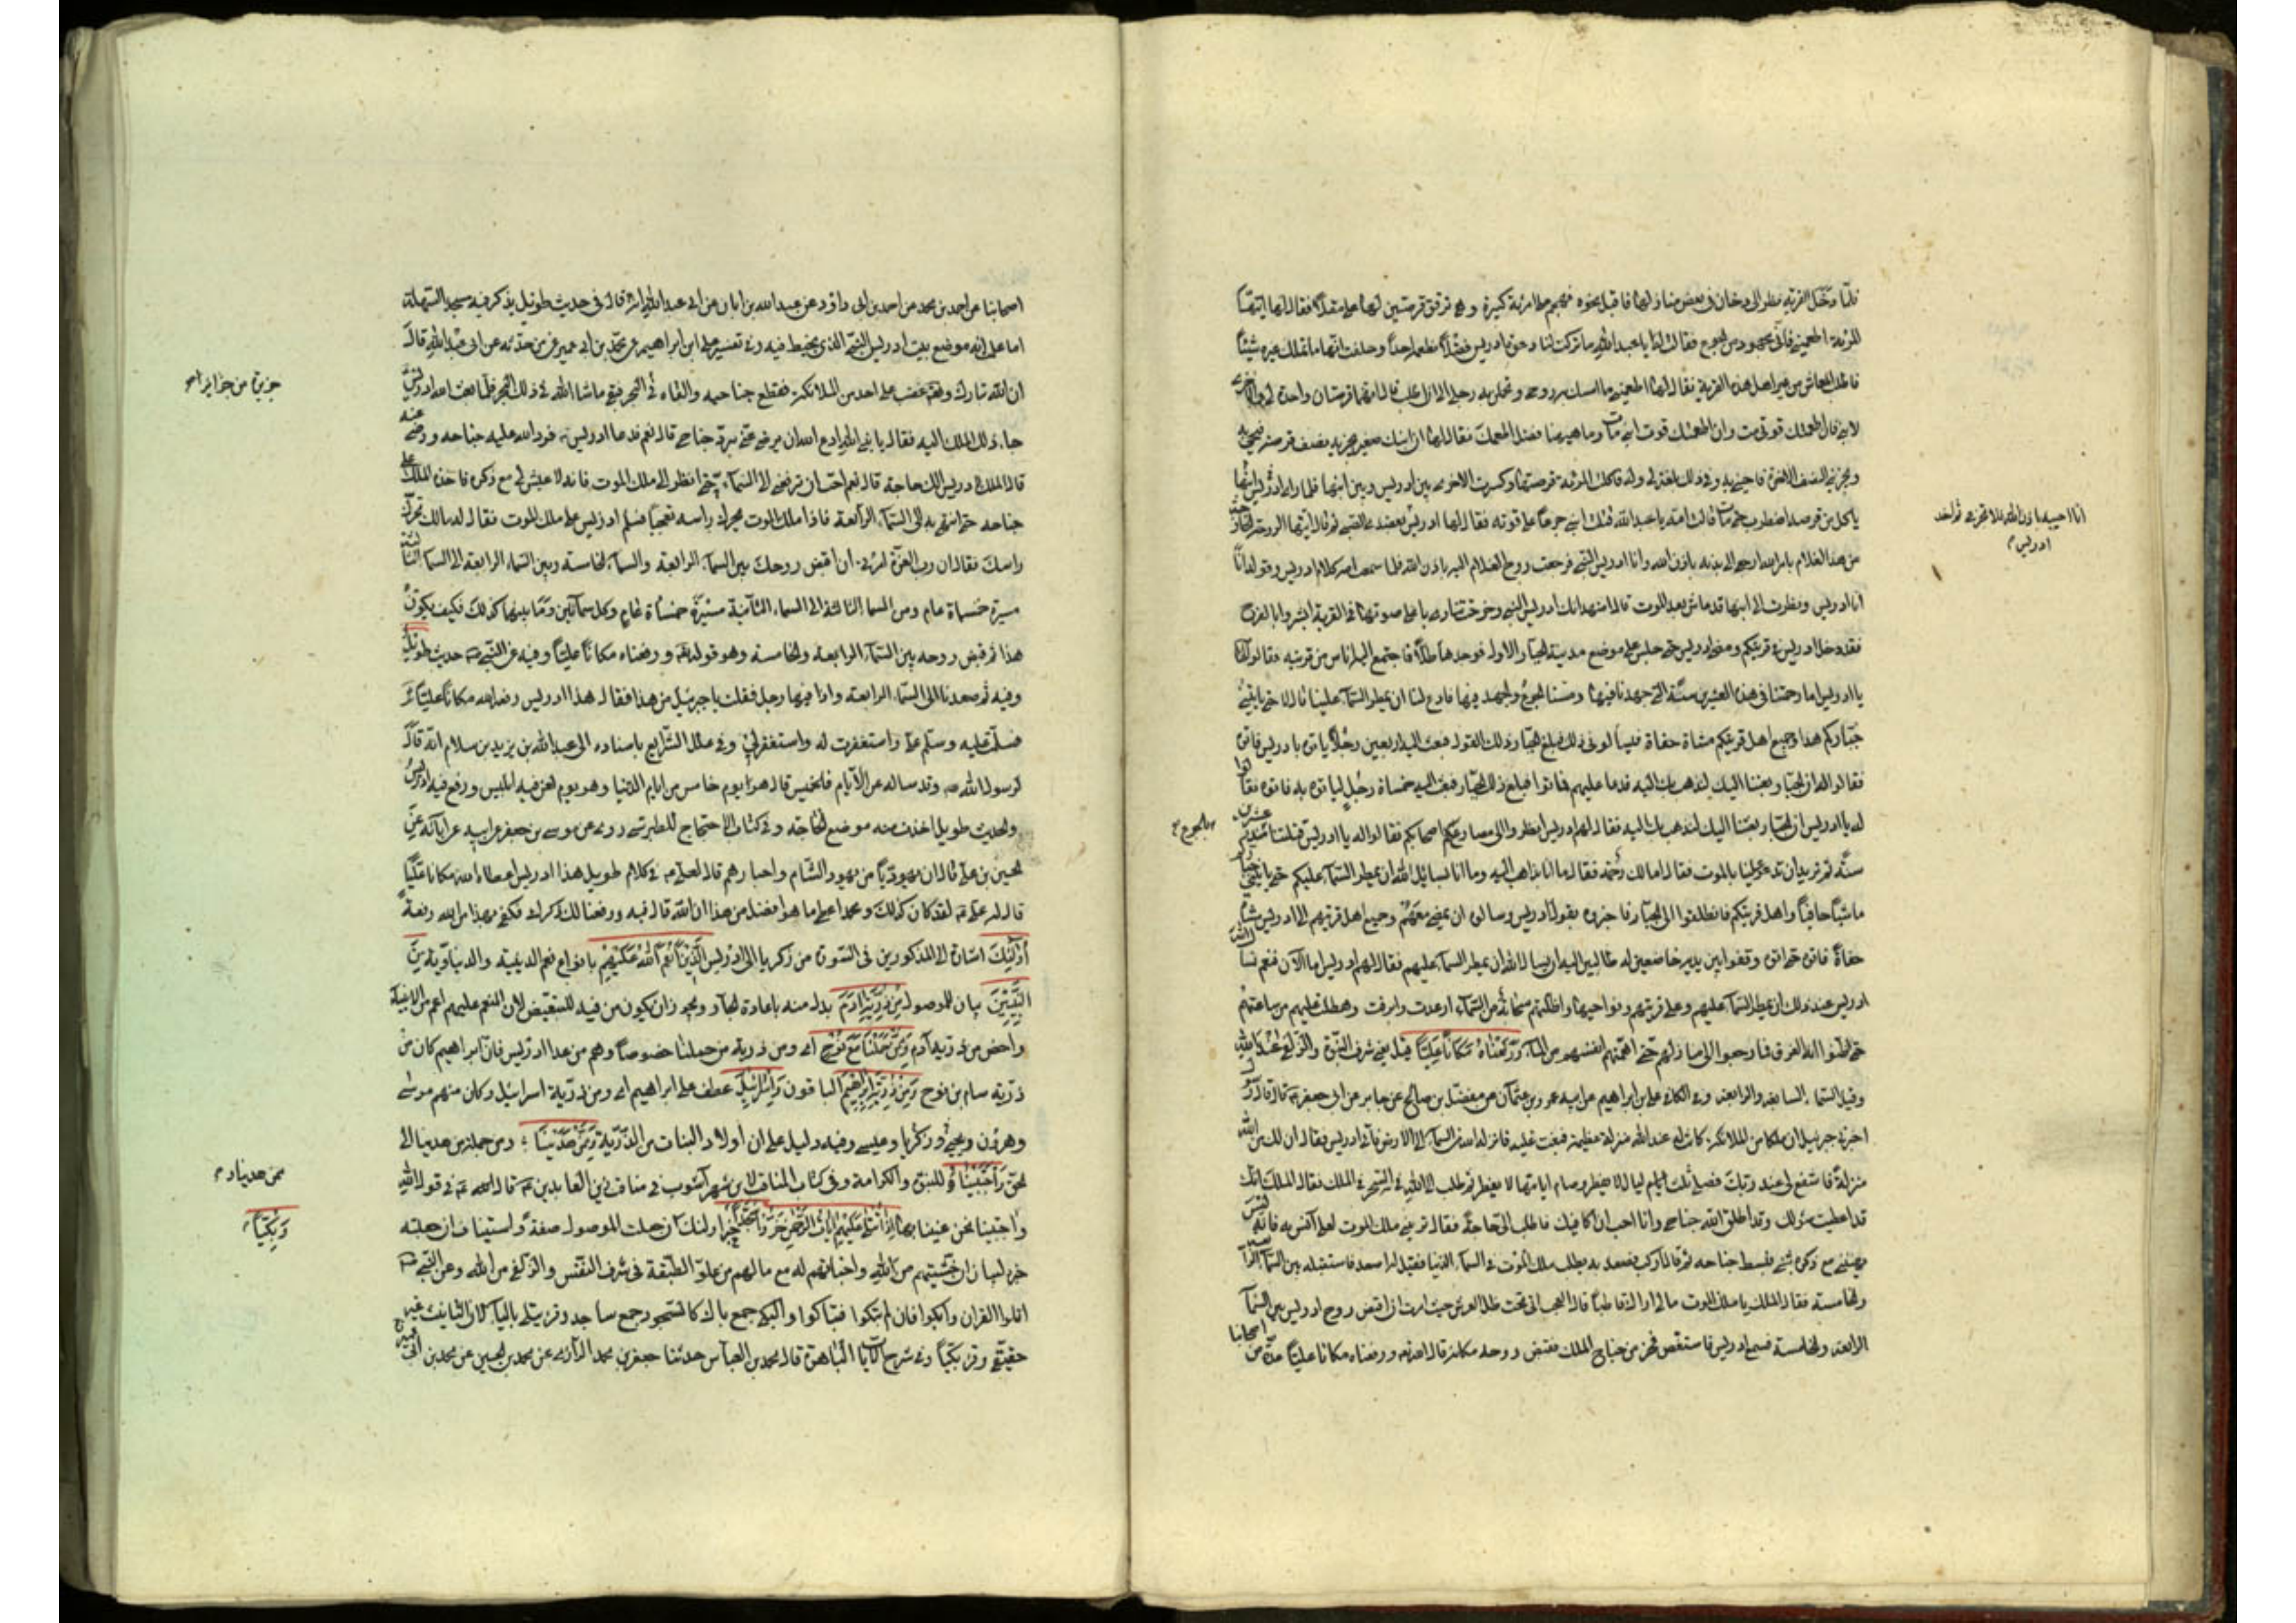 فلما دخل القرية نظر الى دخان فى بعض منازلها فاقبل نحوه فهجم على امرئة كبيرة وهى ترقق قرصتين لها على مقلاة فقال لها ايتها
المرئة اطعمينى فانى مجهود من الجوع فقالت له يا عبد الله ما تركت لنا دعوة ادريس فضلا نطعمه احدا وحلفت انها ما تملك غيره شيئا
فاطلب المعاش من غير اهل هذه القرية فقال لها اطعمينى ما امسك به روحى وتحملنى به رجلى الى ان اطلب قالت انهما قرصتان واحدة لى والاخرى
لابنى فان اطعمتك قوتى مت وان اطعمتك قوت ابنى مات وما هيهنا فضل اطعمك فقال لها ان ابنك صغير يجزيه نصف قرصة فيحيى به
ويجزينى النصف الاخر فاحيى به وفى ذلك بلغة لى وله فاكلت المرئة قرصتها وكسرت الاخرى بين ادريس وبين ابنها فلما راى ابنها ادريس
ياكل من قرصه اضطرب حتى مات قالت امه يا عبد الله قتلت ابنى جزعا على قوته فقال لها ادريس فانا احييه باذن الله فلا تجزعى ثم اخذ ادريس بعضدى الصبى ثم قال ايتها الروح الخارجة
من هذا الغلام بامر الله ارجعى الى بدنه باذن الله وانا ادريس النبى فرجعت روح الغلام اليه باذن الله فلما سمعت امه كلام ادريس وقوله انا
انا ادريس ونظرت الى ابنها قد عاش بعد الموت قالت اشهد انك ادريس النبى وخرجت تنادى باعلى صوتها فى القرية ابشروا بالفرج
فقد دخل ادريس قريتكم ومضى ادريس حتى جلس على موضع مدينة الجبار الاول فوجدها تلا فاجتمع اليه اناس من قريته فقالوا له
يا ادريس اما رحمتنا فى هذه العشرين سنة التى جهدنا فيها ومسنا الجوع والجهد فيها فادع لنا ان يمطر السماء علينا قال لا حتى ياتينى
جباركم هذا وجميع اهل قريتكم مشاة حفاة فيسألونى ذلك فبلغ الجبار ذلك القول فبعث اليه اربعين رجلا ياتون بادريس فاتوه
فقالوا له ان الجبار بعثنا اليك لنذهب بك اليه فدعا عليهم فماتوا فبلغ ذلك الجبار فبعث اليه خمسمأة رجل لياتوه به فاتوه فقالوا
له يا ادريس ان الجبار بعثنا اليك لنذهب بك اليه فقال لهم ادريس انظروا الى مصارع اصحابكم فقالوا له يا ادريس قتلتنا بالجوع منذ عشرين
سنة ثم تريد ان تدعو علينا بالموت فقال اما لك رحمة فقال ما انا بذاهب اليه وما انا بسائل الله ان يمطر السماء عليكم حتى ياتينى جباركم
ماشيا حافيا واهل قريتكم فانطلقوا الى الجبار فاخبروه بقول ادريس وسالوه ان يمضى معهم وجميع اهل قريتهم الى ادريس مشاة
حفاة فاتوه حتى وقفوا بين يديه خاضعين له طالبين اليه ان يسال الله ان يمطر السماء عليهم فقال لهم ادريس اما الآن فنعم فسال الله
ادريس عند ذلك ان يمطر السماء عليهم وعلى قريتهم ونواحيها واظلتهم سحابة من السماء ارعدت وابرقت وهطلت عليهم من ساعتهم
حتى ظنوا انه الغرق فما رجعوا الى منازلهم حتى اهمتهم انفسهم من الماء ورفعناه مكانا عليا قيل يعنى شرف النبوة والزلفى عند الله
وقيل السماء السابعة والرابعة وفى الكافى على بن ابراهيم عن ابيه عن عمرو بن عثمان عن مفضل بن صالح عن جابر عن ابى جعفر قال قال رسول الله
اخبرنى جبرئيل ان ملكا من الملائكة كانت له عند الله منزلة عظيمة فبعث عليه فانزله الله من السماء الى الارض فاتى ادريس فقال ان لك من الله
منزلة فاشفع لى عند ربك فصلى ثلث ليال لا يفطر وصام ايامها لا يفطر ثم طلب الى الله فى السحر فى الملك فقال الملك انك
قد اعطيت سؤلك وقد اطلق الله جناحى وانا احب ان اكافيك فاطلب الى حاجة فقال ترينى ملك الموت لعلى آنس به فانه ليس
يهنئنى مع ذكره شئ فبسط جناحه ثم قال اركب فصعد به يطلب ملك الموت فى السماء الدنيا فقيل له اصعد فاستقبله بين السماء الرابعة
والخامسة فقال الملك يا ملك الموت مالى اراك قاطبا قال العجب انى تحت ظل العرش حيث امرت ان اقبض روح ادريس بين السماء
الرابعة والخامسة فسمع ادريس فامتعض فخر من جناح الملك فقبض روحه مكانه قال الله تعالى ورفعناه مكانا عليا عدة من اصحابنا
انا احييه باذن الله فلا تجزعى ثم اخذ
ادريس
بالجوع
اصحابنا عن احمد بن محمد عن احمد بن ابى داود عن عبد الله بن ابان عن ابى عبد الله انه قال فى حديث طويل يذكر فيه مسجد السهلة
اما علمت انه موضع بيت ادريس النبى الذى يخيط فيه وفى تفسير على ابن ابراهيم عن محمد بن ابى عمير عمن حدثه عن ابى عبد الله قال
ان الله تبارك وتعالى غضب على احد من الملائكة فقطع جناحيه والقاه فى البحر فبقى ما شاء الله فى ذلك البحر فلما بعث الله ادريس
جاء ذلك الملك اليه فقال يا نبى الله ادع الله ان يرضى عنى ويرد جناحى قال نعم فدعا ادريس فرد الله عليه جناحه ورضى عنه
قال الملك لادريس الك حاجة قال نعم احب ان ترفعنى الى السماء حتى انظر الى ملك الموت فانه لا عيش لى مع ذكره فاخذه الملك على
جناحه حتى انتهى به الى السماء الرابعة فاذا ملك الموت يحرك راسه تعجبا فسلم ادريس على ملك الموت فقال له مالك تحرك
راسك فقال ان رب العزة امرنى ان اقبض روحك بين السماء الرابعة والسماء الخامسة وبين السماء الرابعة الى السماء الثالثة
مسيرة خمسمأة عام ومن السماء الثالثة الى السماء الثانية مسيرة خمسمأة عام وكل سمائين وما بينهما كذلك فكيف يكون
هذا ثم قبض روحه بين السماء الرابعة والخامسة وهو قوله ورفعناه مكانا عليا وفيه عن النبى حديث طويل
وفيه ثم صعدنا الى السماء الرابعة واذا فيها رجل فقلت يا جبرئيل من هذا فقال هذا ادريس رفعه الله مكانا عليا
فسلمت عليه وسلم على واستغفرت له واستغفر لى وفى علل الشرايع باسناده الى عبد الله بن يزيد بن سلام انه قال
لرسول الله وقد ساله عن الايام فالخميس قال هو يوم خامس من ايام الدنيا وهو يوم لعن فيه ابليس ورفع فيه ادريس
والحديث طويل اخذت منه موضع الحاجة وفى كتاب الاحتجاج للطبرسى روى عن موسى بن جعفر عن ابيه عن آبائه عن
الحسين بن على قال ان يهوديا من يهود الشام واحبارهم قال لعلى فى كلام طويل هذا ادريس اعطاه الله مكانا عليا
قال له على لقد كان كذلك ومحمد اعطى ما هو افضل من هذا ان الله قال فيه ورفعنا لك ذكرك فكفى بهذا من الله رفعة
اولئك اشارة الى المذكورين فى السورة من زكريا الى ادريس الذين انعم الله عليهم بانواع نعم الدينية والدنياوية من
النبيين بيان للموصول من ذرية ادم بدل منه باعادة الجار ويجوز ان يكون من فيه للتبعيض لان المنعم عليهم اعم من الانبياء
واخص من ذرية آدم وممن حملنا مع نوح اى ومن ذرية من حملنا خصوصا وهم من عدا ادريس فان ابراهيم كان من
ذرية سام بن نوح ومن ذرية ابراهيم الباقون واسرائيل عطف على ابراهيم اى ومن ذرية اسرائيل وكان منهم موسى
وهرون ويحيى وزكريا وعيسى وفيه دليل على ان اولاد البنات من الذرية وممن هدينا ومن جملة من هدينا الى
الحق واجتبينا للنبوة والكرامة وفى كتاب المناقب لابن شهر آشوب فى مناقب زين العابدين قال فى قوله تعالى
واجتبينا نحن عنينا بها اذا تتلى عليهم آيات الرحمن خروا سجدا خبر لاولئك ان جعلت الموصول صفة واستيناف ان جعلته
خبره لبيان خشيتهم من الله واخباتهم له مع ما لهم من علو الطبقة فى شرف النفس والزلفى من الله وعن النبى
اتلوا القران وابكوا فان لم تبكوا فتباكوا والبكى جمع باك كالسجود جمع ساجد وقرئ يتلى بالياء لان التانيث غير
حقيقى وقرئ بكيا وفى شرح الآيات الباهرة قال محمد بن العباس حدثنا جعفر بن محمد الرازى عن محمد بن الحسين عن محمد بن ابى عمير
جزيرة من جزاير البحر
ممن هدينا
وبكيا